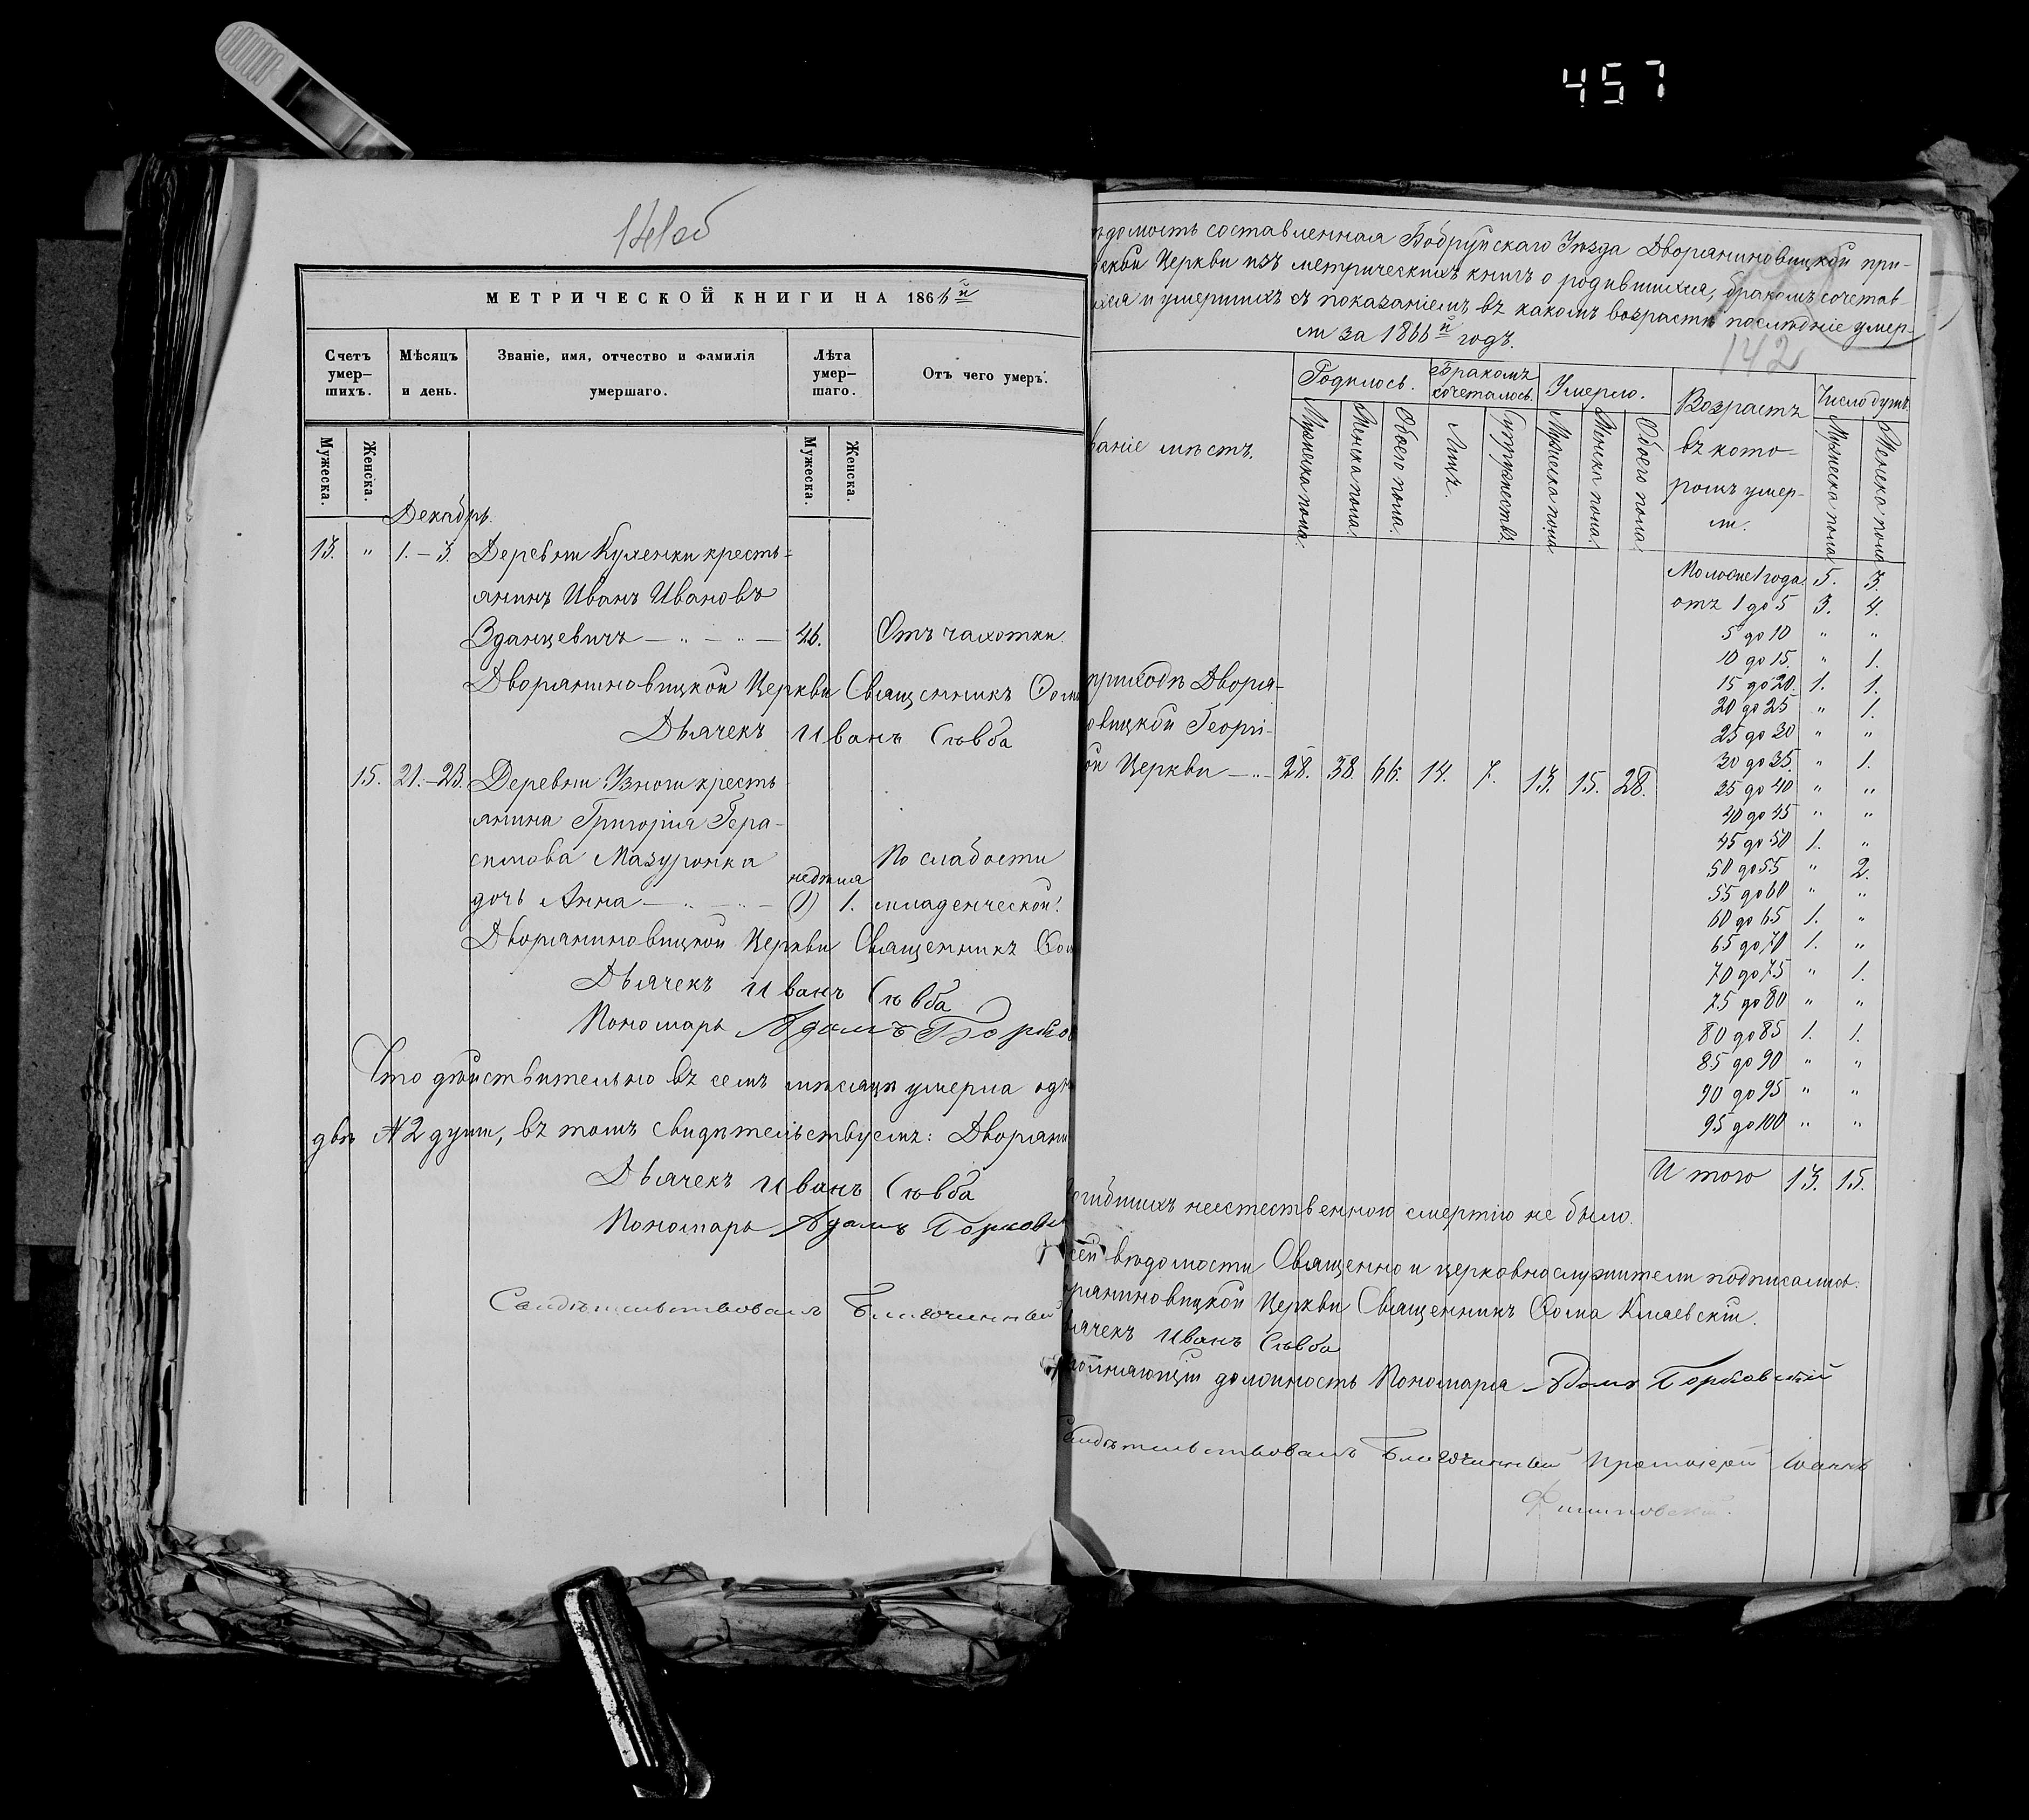 457
141об
МЕТРИЧЕСКОЙ КНИГИ НА 1866й
Счетъ умер–шихъ.
Мѣсяцъ и день.
Званіе, имя, отчество и фамилія умершаго.
Лѣта умер–шаго.
Отъ чего умеръ.
Мужеска.
Женска.
Мужеска.
Женска.
Декабрь.
13. " 1.–3. Деревни Кухенки кресть=
янинъ Иванъ Ивановъ
Зданцевичъ — " — " — 46. Отъ чахотки.
Дворяниновицкой Церкви Священникъ Ѳома
Дьячекъ Иванъ Сювба
15. 21.–23. Деревни Узноги кресть
янина Григорія Гера–
симова Мазуронка По слабости
недѣля
дочь Анна — " — " — (1) 1. младенческой.
Дворяниновицкой Церкви Священникъ Ѳом
Дьячекъ Иванъ Сювба
Пономарь Адамъ Горбов
Что дѣйствительно въ семъ мѣсяцѣ умерла
двѣ №2 души, въ томъ свидѣтельствуемъ: Дворяни
Дьячекъ Иванъ Сювба
Пономарь Адамъ Горбов
Свидѣтельствовалъ Благочинный
ѣдомость составленная Бобруйскаго Уѣзда Дворяниновицкой при–
ской Церкви изъ метрическихъ книгъ о родившихся, бракомъ сочетав–
ихся и умершихъ съ показаніемъ въ какомъ возрастѣ послѣдніе умер–
ли за 1866й годъ.
142
ваніе мѣстъ.
Родилось.
Бракомъ сочеталось.
Умерло.
Возрастъ въ кото–ромъ умер–ли.
Число душъ.
Мужеска пола.
Женска пола.
Обоего пола.
Лицъ.
Супружествъ.
Мужеска пола
Женска пола.
Обоего пола.
Мужеска пола
Женска пола
Моложе 1 года. 5. 3.
отъ 1 до 5 3. 4.
5 до 10 " "
10 до 15. " 1.
15 до 20. 1. 1.
20 до 25 " 1.
25 до 30 " "
30 до 35. " 1.
35 до 40 " "
40 до 45 " "
45 до 50 1. "
50 до 55 " 2.
55 до 60 " "
60 до 65 1. "
65 до 70 1. "
70 до 75 " 1.
75 до 80 " "
80 до 85 1. 1.
85 до 90 " "
90 до 95 " "
95 до 100 " "
Итого 13. 15.
приходѣ Дворя–
овицкой Георгі–
ой Церкви — " 28. 38. 66. 14. 7. 13. 15. 28.
гибшихъ неестественною смертію не было.
сей вѣдомости Священно и церковнослужители подписались.
ряниновицкой Церкви Священникъ Ѳома Кмаевскій.
ьячекъ Иванъ Сювба
олняющій должность Пономаря Адамъ Горбовскій
видѣтельствовалъ Благочинный Протоіерей Іоаннъ
Филиповскій.